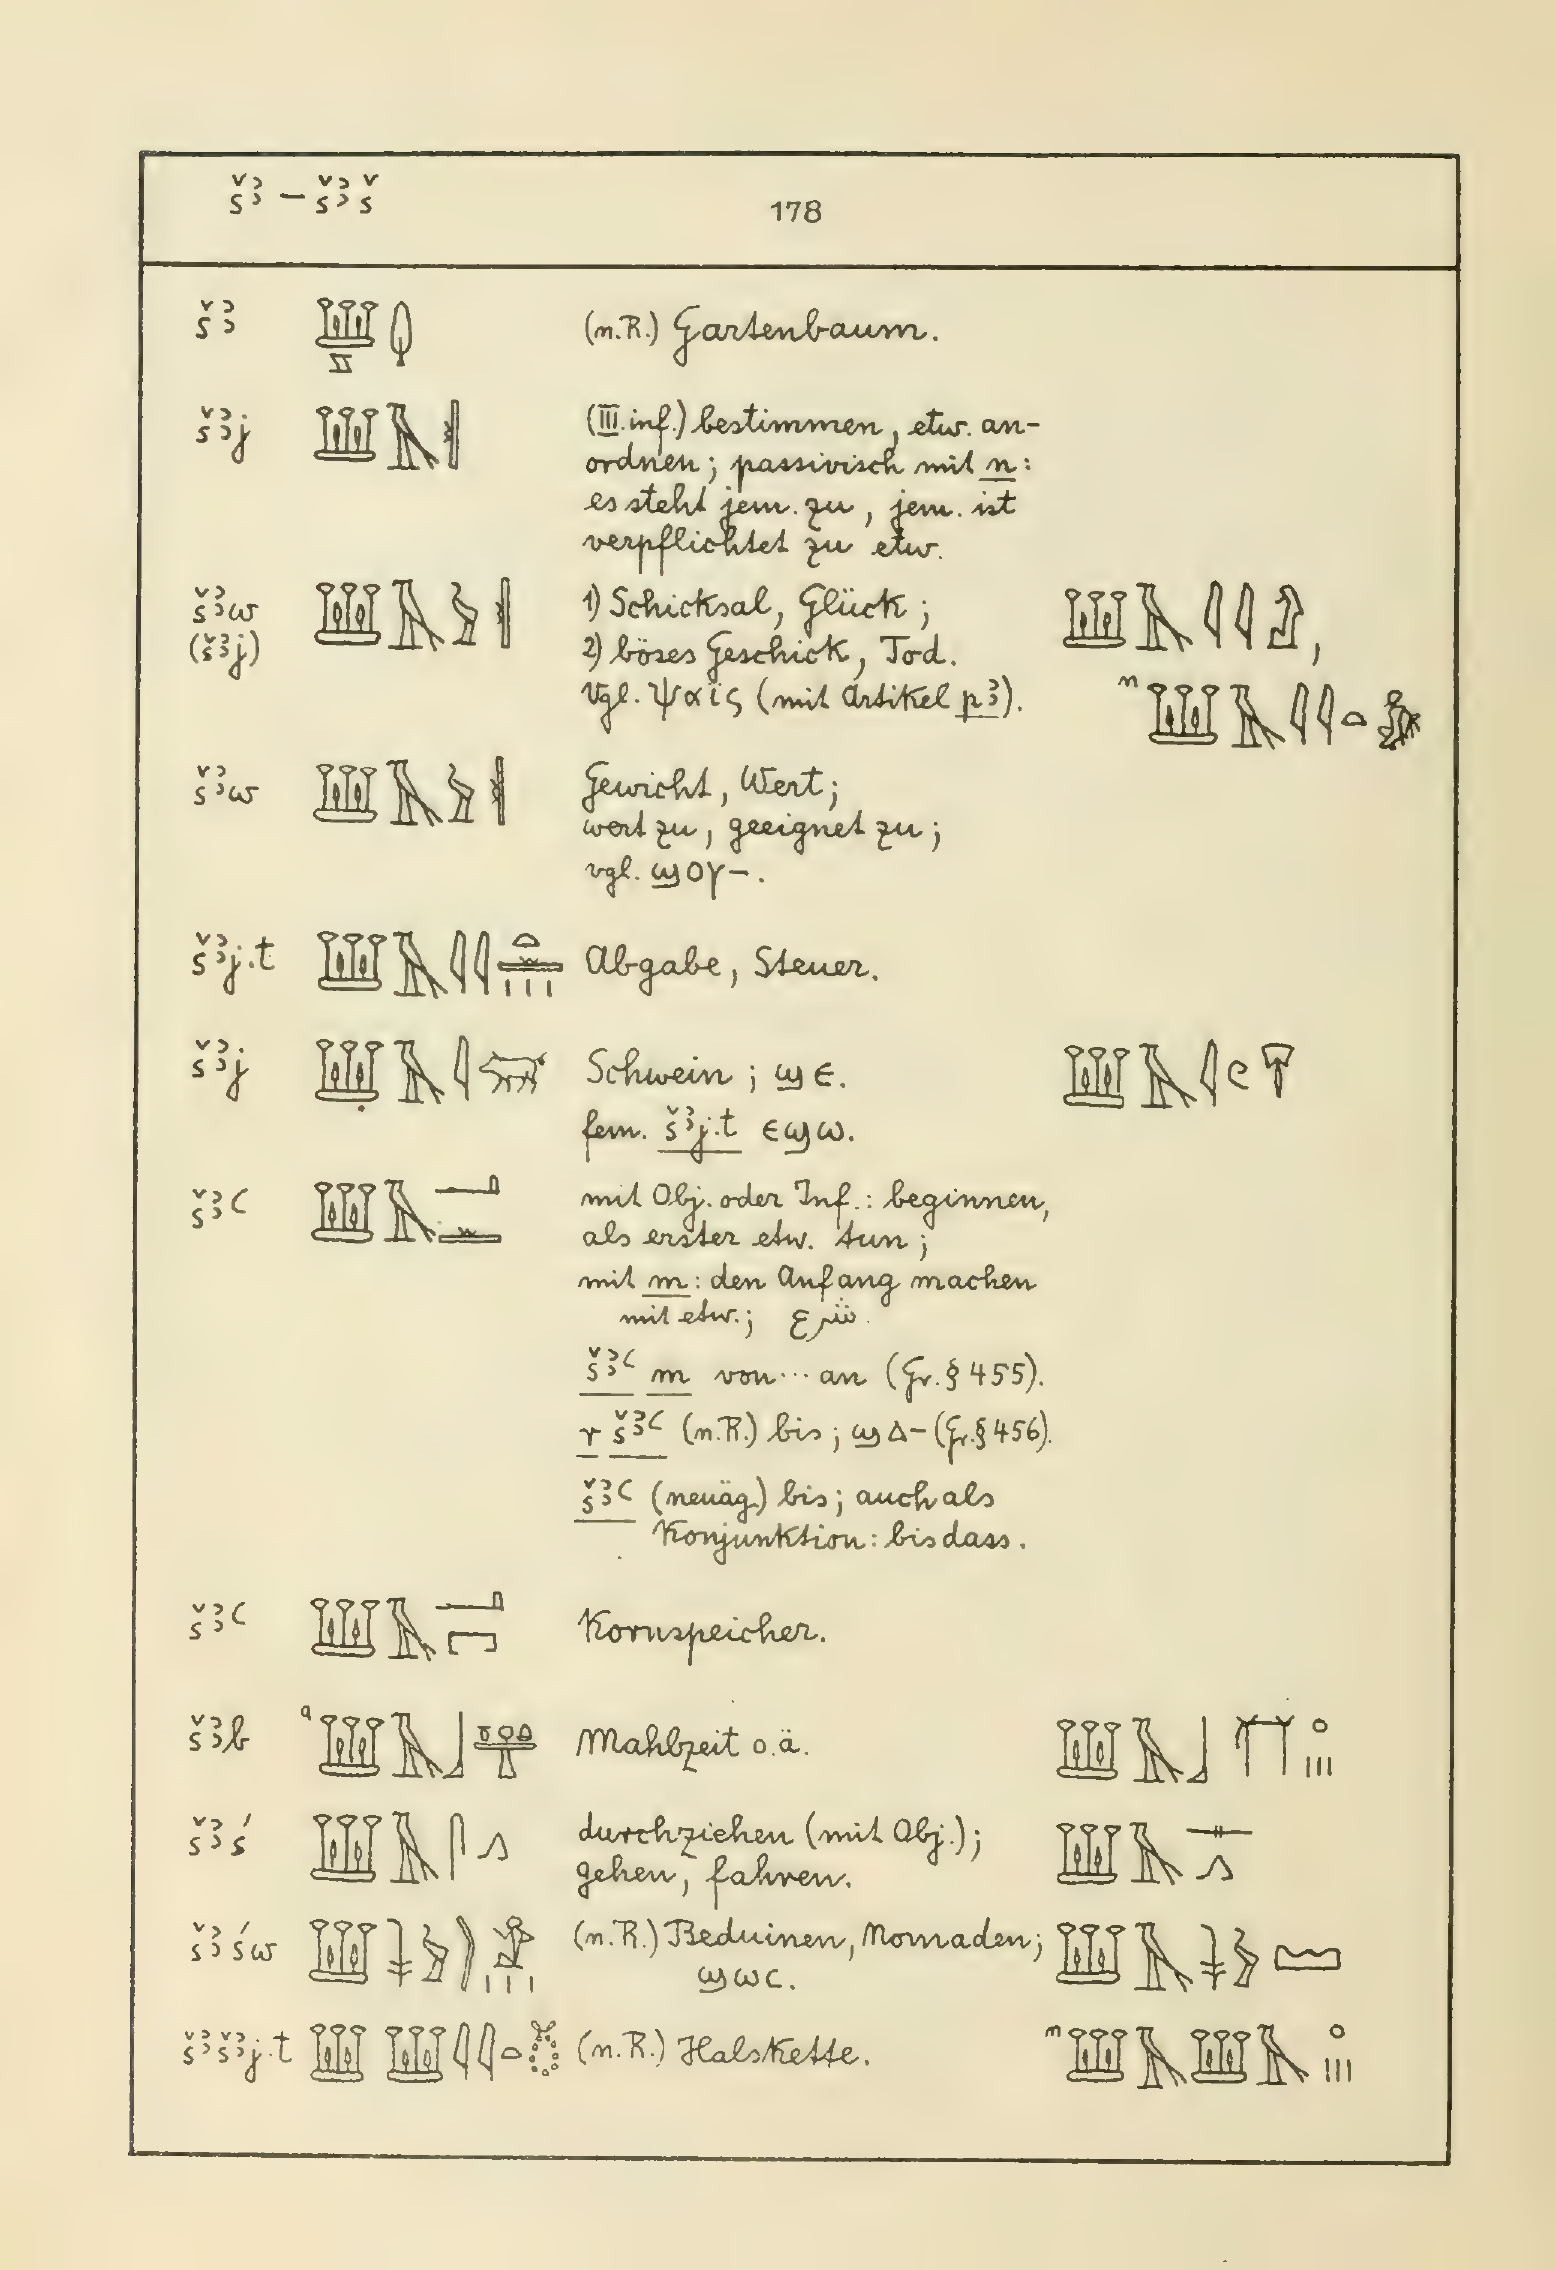 šꜣ – šꜣš
178
šꜣ (n.R.) Gartenbaum.
šꜣj (III.inf.) bestimmen, etw. an-
ordnen; passivisch mit n:
es steht jem. zu, jem. ist
verpflichtet zu etw.
šꜣw 1) Schicksal, Glück;
(šꜣj) 2) böses Geschick, Tod.
Vgl. ψαϊς (mit Artikel pꜣ).
n
šꜣw Gewicht, Wert;
wert zu, geeignet zu;
vgl. ϣⲟⲩ-.
šꜣj.t Abgabe, Steuer.
šꜣj Schwein; ϣⲉ.
fem. šꜣj.t ⲉϣⲱ.
šꜣꜥ mit Obj. oder Inf.: beginnen,
als erster etw. tun;
mit m: den Anfang machen
mit etw.; شرع.
šꜣꜥ m von ... an (Gr. § 455).
r šꜣꜥ (n.R.) bis; ϣⲁ- (Gr. § 456).
šꜣꜥ (neuäg.) bis; auch als
Konjunktion: bis dass.
šꜣꜥ Kornspeicher.
šꜣb a Mahlzeit o.ä.
šꜣś durchziehen (mit Obj.);
gehen, fahren.
šꜣśw (n.R.) Beduinen, Nomaden;
ϣⲱⲥ.
šꜣšꜣj.t (n.R.) Halskette. n